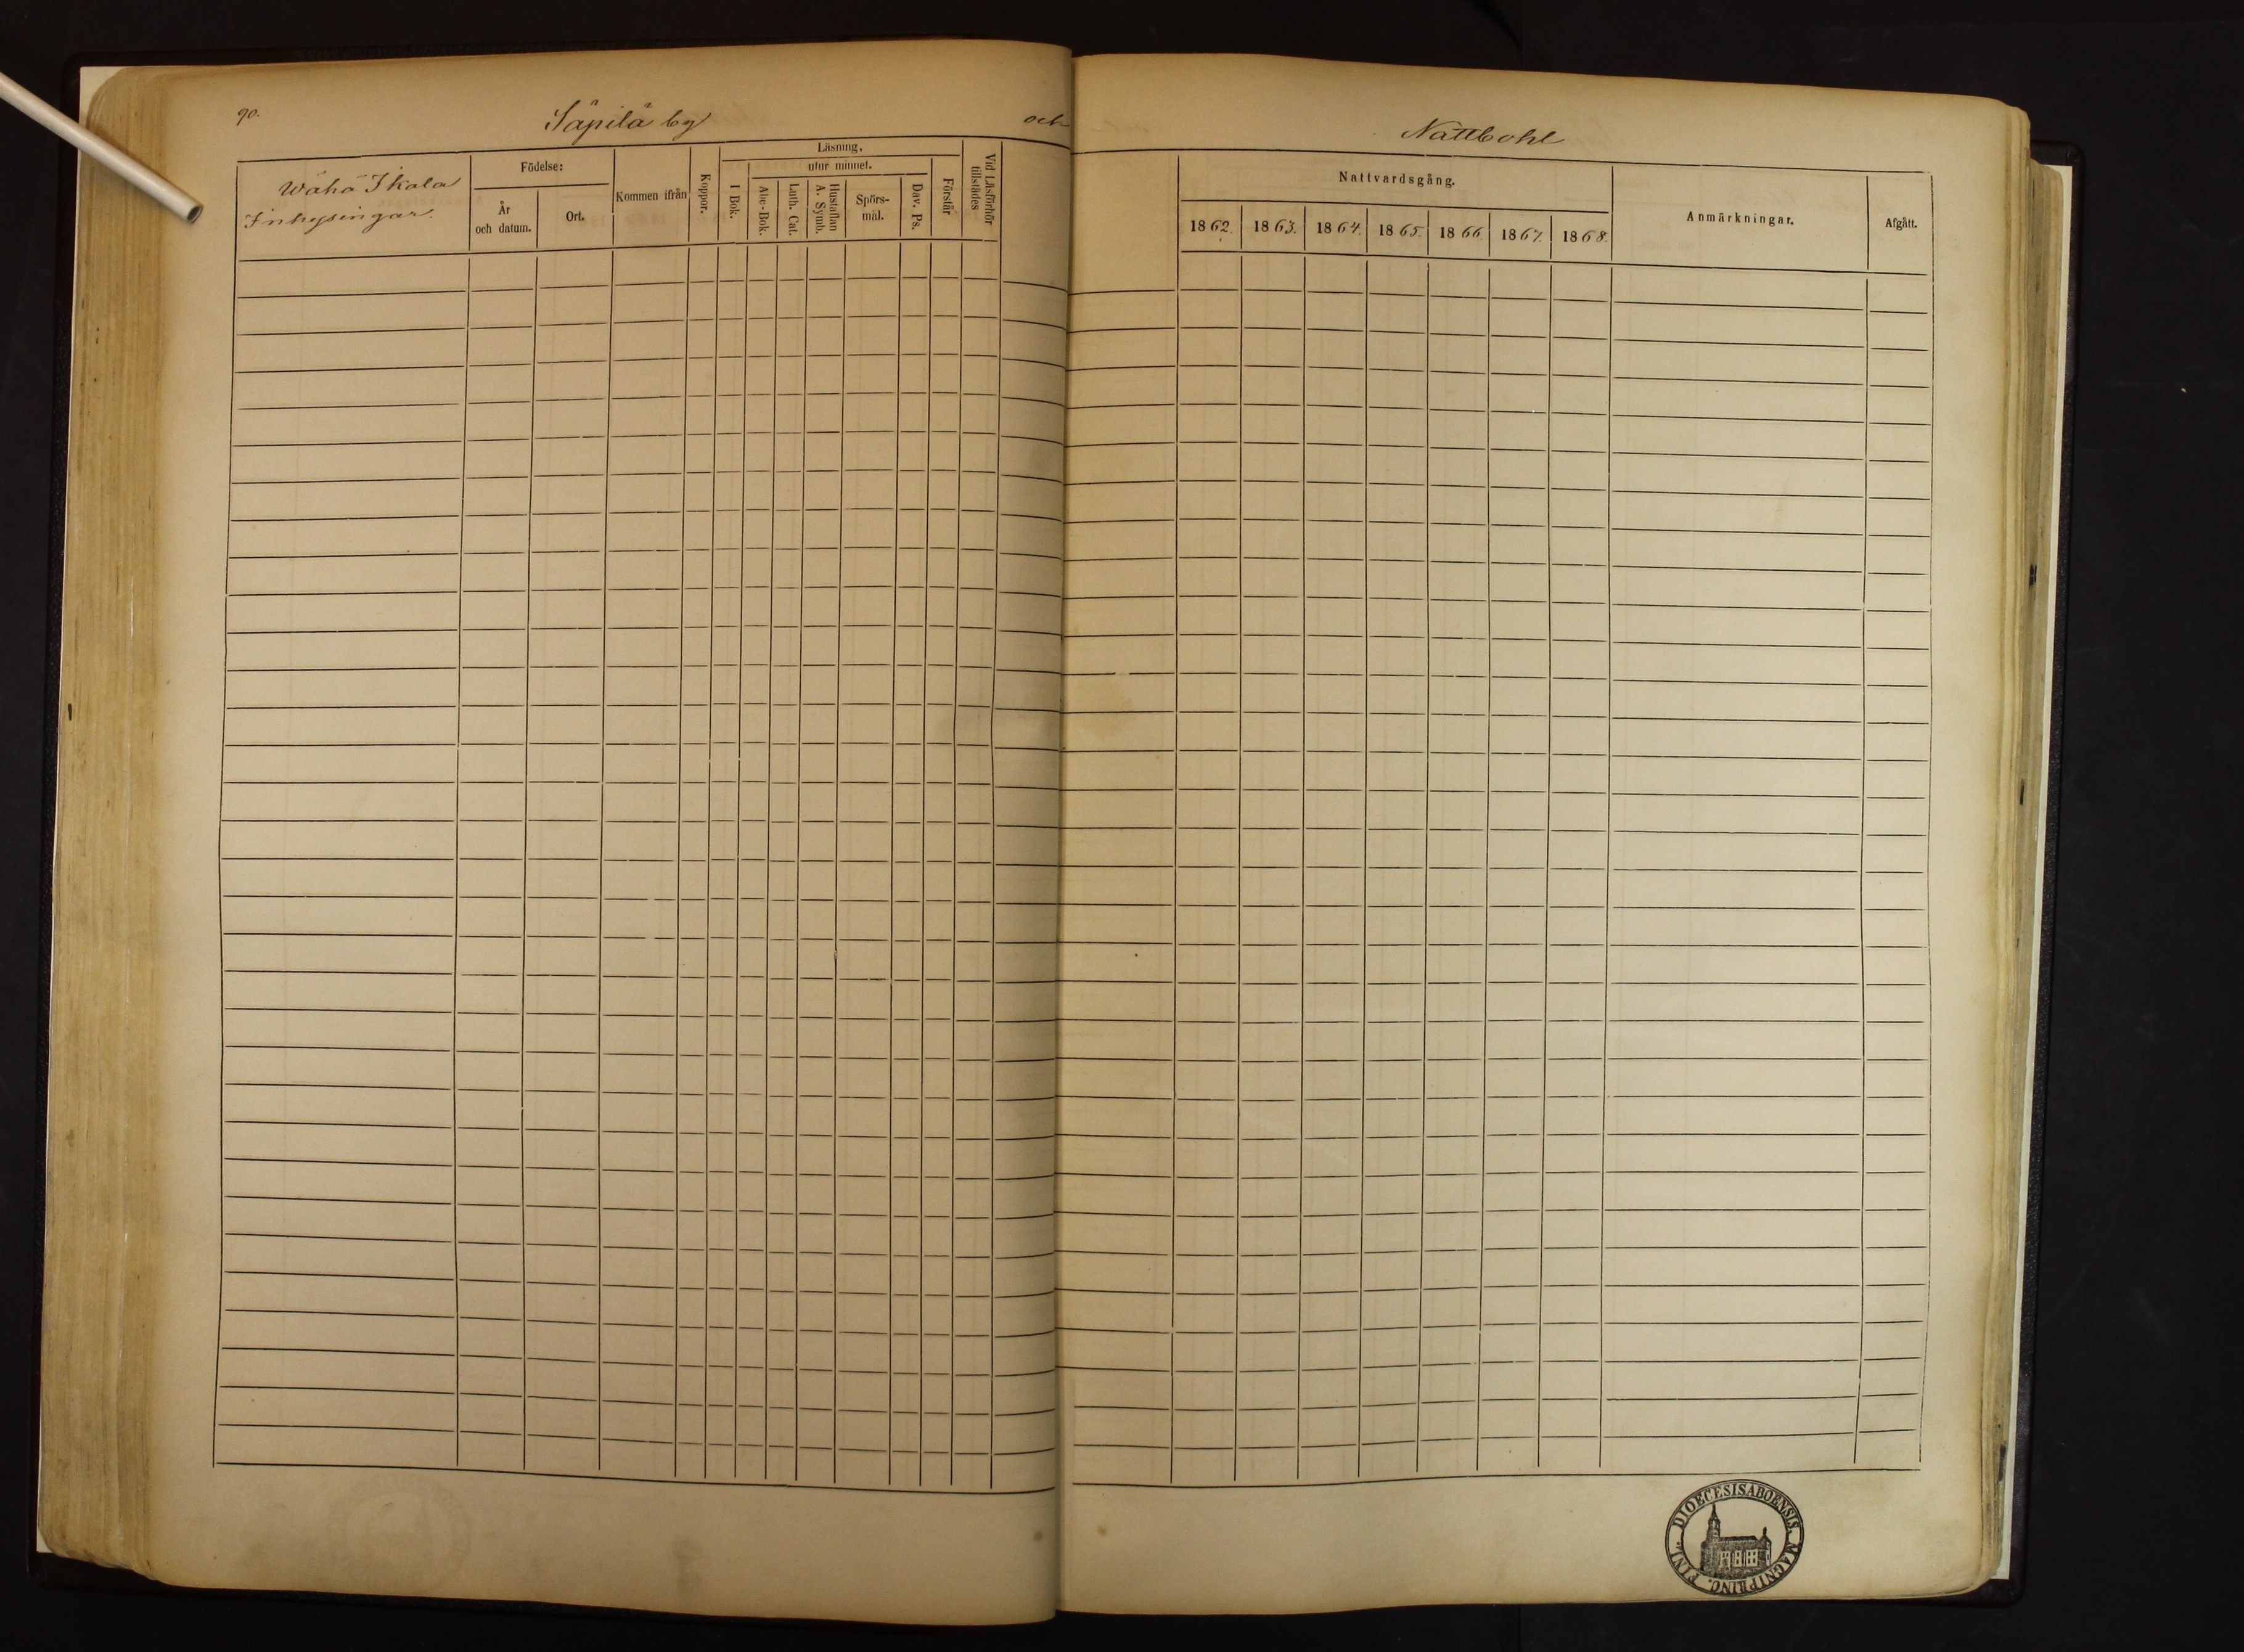 90.
Säpilä by och Nättbohl
Wähä Ikala
Inhysingar.
Födelse:
År
och datum.
Ort.
Kommen ifrån
Koppor.
Läsning.
utur minnet.
I Bok.
Abc-Bok.
Luth. Cat.
Hustaflan
A. Symb.
Spörs-
mål.
Dav. Ps.
Förstår
Vid Läsförhör
tillstädes
Nattvardsgång.
1862. 1863. 1864. 1865. 1866 1867. 1868.
Anmärkningar.
Afgått.
DIOECESISABOENSIS. MAGNIPRINC. FINL.